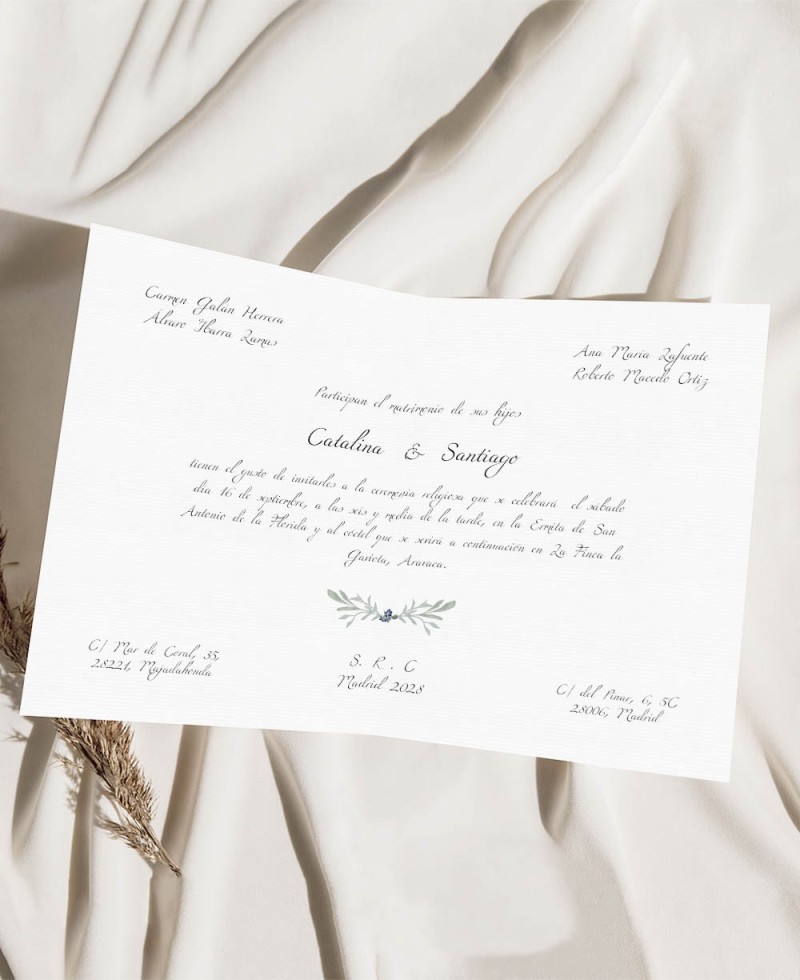 Carmen Galán Herrera
Álvaro Ibarra Zamas
Ana María Lafuente
Roberto Macedo Ortiz
Participan el matrimonio de sus hijos
Catalina & Santiago
tienen el gusto de invitarles a la ceremonia religiosa que se celebrará el sábado
día 16 de septiembre, a las seis y media de la tarde, en la Ermita de San
Antonio de la Florida y al cóctel que se serirá a continuación en La Finca la
Gaviota, Aravaca.
C/ Mar de Coral, 35,
28221, Majadahonda
S. R. C
Madrid 2028
C/ del Pinar, 6, 5C
28006, Madrid